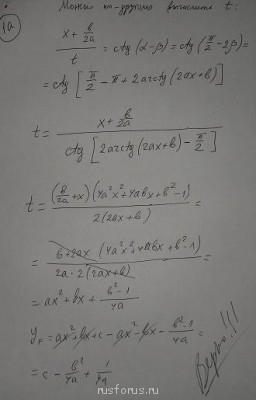 1a
Можно по-другому вычислить t:
(x + b/2a)/t = ctg(α-β) = ctg(π/2 - 2β) =
= ctg[π/2 - π + 2arctg(2ax+b)]
t = (x + b/2a)/(ctg[2arctg(2ax+b) - π/2])
t = ((b/2a + x)(4a²x² + 4abx + b² - 1))/(2(2ax+b)) =
= ((b+2ax)(4a²x² + 4abx + b² - 1))/(2a·2(2ax+b)) =
= ax² + bx + (b²-1)/4a
y_F = ax² + bx + c - ax² - bx - (b²-1)/4a =
= c - b²/4a + 1/4a
Верно!!!
rusforus.ru